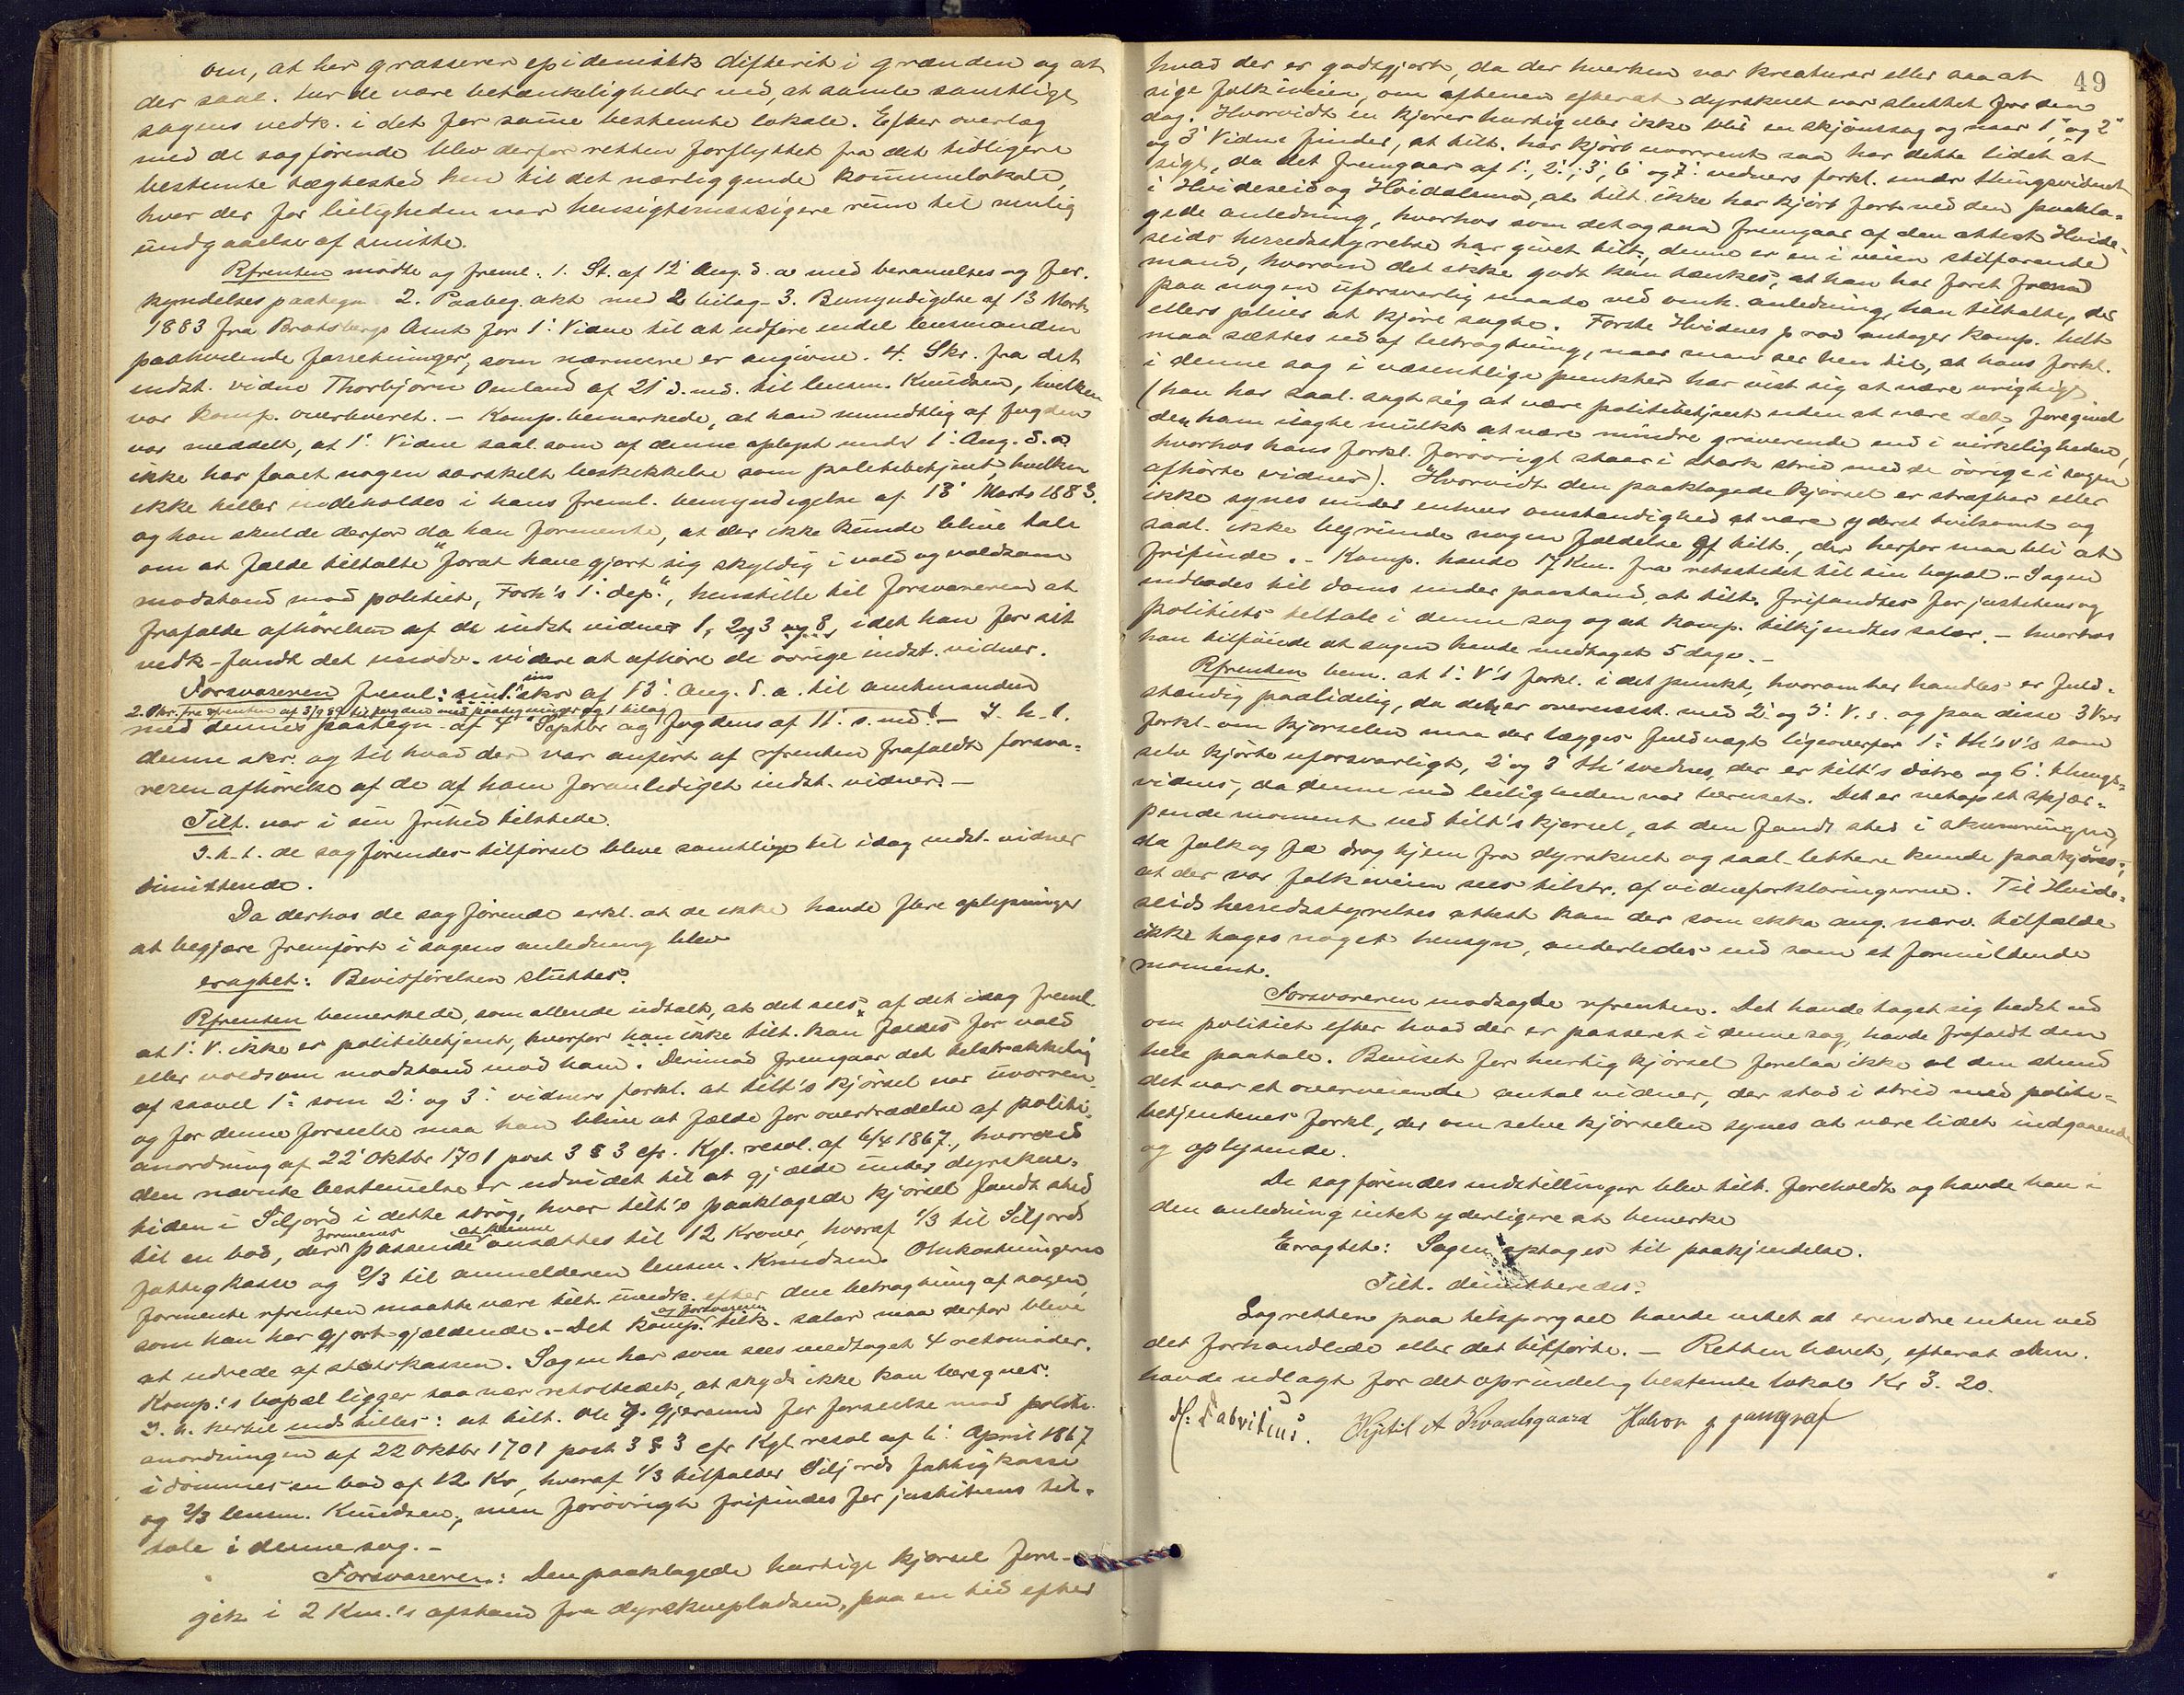 om, at her grasserer epidemisk difterit i grænden og at
der saal. turde være betænkeligheder ved, at samle samtlige
sagens vedk. i det for samme bestemte lokale. Efter overlæg
med de sagførende blev derfor retten forflyttet fra det tidligere
bestemte tægtested hen til det nærliggende kommunelokale,
hvor der for leiligheden var hensigtsmæssigere rum til mulig
undgaaelse af smitte.
Rfrenten mødte og freml: 1. St. af 12' Aug. d. a med berammelses og for-
kyndelsespaategn 2. Paabeg. akt med 2 bilag – 3. Bemyndigelse af 13 Marts
1883 fra Bratsbergs Amt for 1' Vidne til at udføre endel lensmanden
paahvilende forretninger, som nærmere er angivne. 4. Skr. fra det
indst. vidne Thorbjørn Omland af 21' d. md. til lensm. Knudsen, hvilken
var komp. overleveret. – Komp. bemærkede, at han mundtlig af fogden
var meddelt, at 1' Vidne saal. som af denne oplyst under 1' Aug. d. a
ikke har faaet nogen særskilt beskikkelse som politibetjent, hvilken
ikke heller indeholdes i hans freml. bemyndigelse af 13' Marts 1883.
og han skulde derfor da han formente, at der ikke kunde blive tale
om at fælde tiltalte "forat have gjort sig skyldig i vold og voldsom
modstand mod politiet, Forh's 1' dep.", henstille til forsvareren at
frafalde afhørelsen af de indst. vidner 1, 2 og 3 og 8, idet han for sit
vedk. fandt det unødv. videre at afhøre de øvrige indst. vidner.
Forsvareren freml: 1. sin skr af 13' Aug. d. a. til amtmanden
2. Skr. fra rfrenten af 3/9 89 til fogden med paategninger og 1 bilag
med dennes paategn af 4' Septbr og fogdens af 11' s. md. – I. h. t.
denne skr. og til hvad der var anført af rfrenten frafaldt forsva-
reren afhørelse af de af ham foranlediget indst. vidner. –
Tilt. var i sin frihed tilstede.
I. h. t. de sagførendes tilførsel bleve samtlige til idag indst. vidner
dimitterede.
Da derhos de sagførende erkl. at de ikke havde flere oplysninger
at begjære fremført i sagens anledning blev
eragtet: Bevisførelsen sluttes.
Rfrenten bemærkede, som allerede udtalt, at det sees af det idag freml.
at 1' V. ikke er politibetjent, hvorfor han ikke tilt. kan fældes for vold
eller voldsom modstand mod ham. Derimod fremgaar det tilstrækkelig
af saavel 1' som 2' og 3' vidners forkl. at tilt's kjørsel var uvorren
og for denne forseelse maa han blive at fælde for overtrædelse af politi-
anordning af 22' Oktbr 1701 post 3 § 3 cfr. Kgl. resol. af 6/4 1867, hvorved
den nævnte bestemmelse er udvidet til at gjælde under dyrskue-
tiden i Siljord i dette strøg, hvor tilt's paaklagede kjørsel fandt sted
til en bod, der formenes passende at kunne ansættes til 12 Kroner, hvoraf 1/3 til Siljords
fattigkasse og 2/3 til anmelderen lensm. Knudsen. Omkostningerne
formente rfrenten maatte være tilt. uvedk. efter den betragtning af sagen,
som han har gjort gjældende. – Det komp. og forsvareren tilk. salær maa derfor blive
at udrede af statskassen. Sagen har som sees medtaget 4 retsmøder.
Komp.'s bopæl ligger saa nær retsstedet, at skyds ikke kan beregnes.
I. h. hertil indstilles: at tilt. Ole J. Gjersund for forseelse mod politi-
anordningen af 22 Oktbr 1701 post 3 § 3 cfr Kgl. resol af 6' April 1867
idømmes en bod af 12 Kr, hvoraf 1/3 tilfalder Siljords fattigkasse
og 2/3 lensm. Knudsen, men forøvrigt frifindes for justitiens til-
tale i denne sag. –
Forsvareren: Den paaklagede hurtige kjørsel fore-
gik i 2 Km.'s afstand fra dyrskuepladsen, paa en tid efter
49
hvad der er godtgjort, da der hverken var kreaturer eller saa at
sige folk iveien, om aftenen efterat dyrskuet var sluttet for den
dag. Hvorvidt en kjører hurtig eller ikke blir en skjønssag og naar 1' og 2'
og 3' Vidne finder, at tilt. har kjørt uvorrent saa har dette lidet at
sige, da det fremgaar af 1', 2', 3', 6' og 7' vidners forkl. under thingsvidnet
i Hvideseid og Hviddalsmo, at tilt. ikke har kjørt fort ved den paakla-
gede anledning, hvorhos som det ogsaa fremgaar af den attest Hvide-
seids herredsstyrelse har givet tilt., denne er en i veien stilfarende
mand, hvorom det ikke godt kan tænkes, at han har faret frem
paa nogen uforsvarlig maate ved omh. anledning, han tiltalte, der
ellers pleier at kjøre sagte. Første Hvidnes prov antager komp. helt
maa sættes ud af betragtning, naar man ser hen til, at hans forkl.
i denne sag i væsentlige punkter har vist sig at være urigtige
(han har saal. sagt sig at være politibetjent uden at være det, foregivet
den ham ilagte mulkt at være mindre graverende end i virkeligheden,
hvorhos hans forkl. forøvrigt staar i stærk strid med de øvrige i sagen
afhørte vidner). Hvorvidt den paaklagede kjørsel er strafbar eller
ikke synes under enhver omstændighed at være yderst tvilsomt og
saal. ikke begrunde nogen fældelse af tilt., der herfor maa bli at
frifinde. – Komp. havde 17 Km. fra retsstedet til sin bopæl. – Sagen
indlodes til doms under paastand, at tilt. frifandtes for justitiens og
politiets tiltale i denne sag og at komp. tilkjendtes salær. – hvorhos
han tilføiede at sagen havde medtaget 5 dage. –
Rfrenten bem. at 1' V's forkl. i det punkt, hvorom her handles er fuld-
stændig paalidelig, da den er overensst. med 2' og 3' V.s. og paa disse 3 V.rs
forkl. om kjørselen maa der lægges fuld vægt ligeoverfor 1' th's v's som
selv kjørte uforsvarligt, 2' og 3' th' svidnes, der er tilt's døtre og 6' things-
vidnes, da denne ved leiligheden var beruset. Det er netop et skjær-
pende moment ved tilt's kjørsel, at den fandt sted i skumringen,
da folk og fæ drog hjem fra dyrskuet og saal. lettere kunde paakjøres;
at der var folk iveien sees tilstr. af vidneforklaringerne. Til Hvide-
seids herredsstyrelses attest kan der som ikke ang. nærv. tilfælde
ikke tages noget hensyn, anderledes end som et formildende
moment.
Forsvareren modsagde rfrenten. Det havde taget sig bedst ud
om politiet efter hvad der er passeret i denne sag, havde frafaldt den
hele paatale. Beviset for hurtig kjørsel forelaa ikke al den stund
det var et overveiende antal vidner, der stod i strid med politi-
betjentenes forkl, der om selve kjørselen synes at være lidet indgaaende
og oplysende.
De sagførendes indstillinger blev tilt. foreholdt og havde han i
den anledning intet yderligere at bemerke
Eragtet: Sagen optages til paakjendelse.
Tilt. dimitteredes.
Lagretten paa tilspørgsel havde intet at erindre enten ved
det forhandlede eller det tilførte. – Retten hævet, efterat Adm.
havde udlagt for det oprindelig bestemte lokale Kr 3. 20.
H: Fabritius. Kjetil A Kvaalsgaard Halvor J Jamgraf